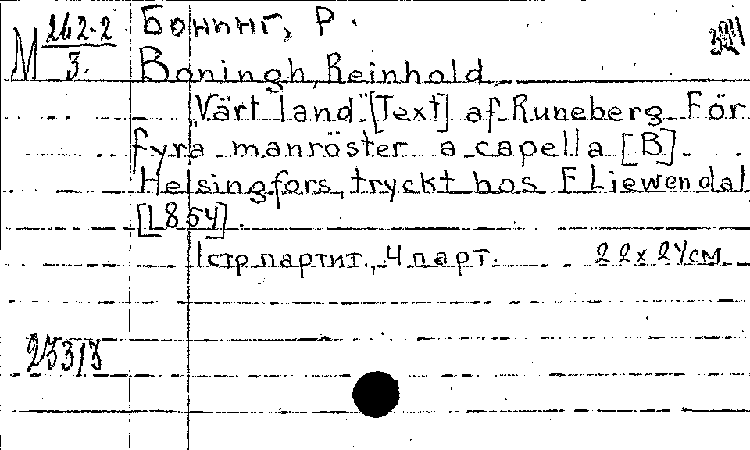 М 262-2/3.
Бонинг, Р.
Boningh, Reinhold
"Värt land" [Text] af Runeberg För
fyra manröster a capella [B].
Helsingfors, tryckt hos F Liewendal
[1854].
1 стр партит., 4 парт. 22x24см